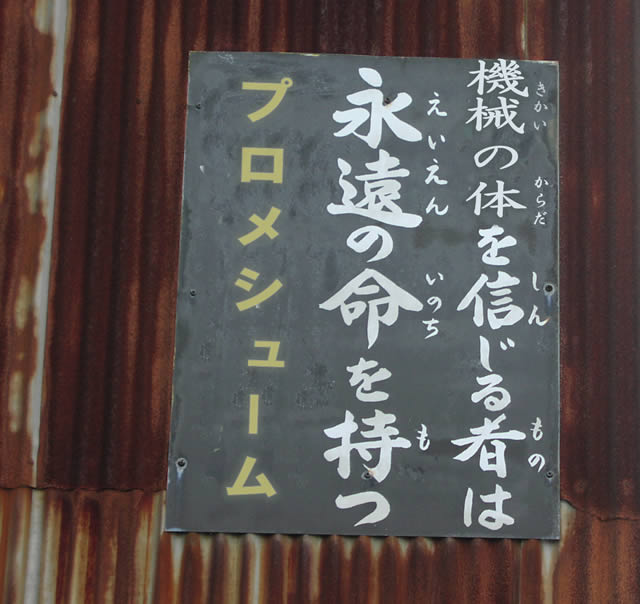 機械の体を信じる者は
きかい からだ しん もの
永遠の命を持つ
えいえん いのち も
プロメシューム